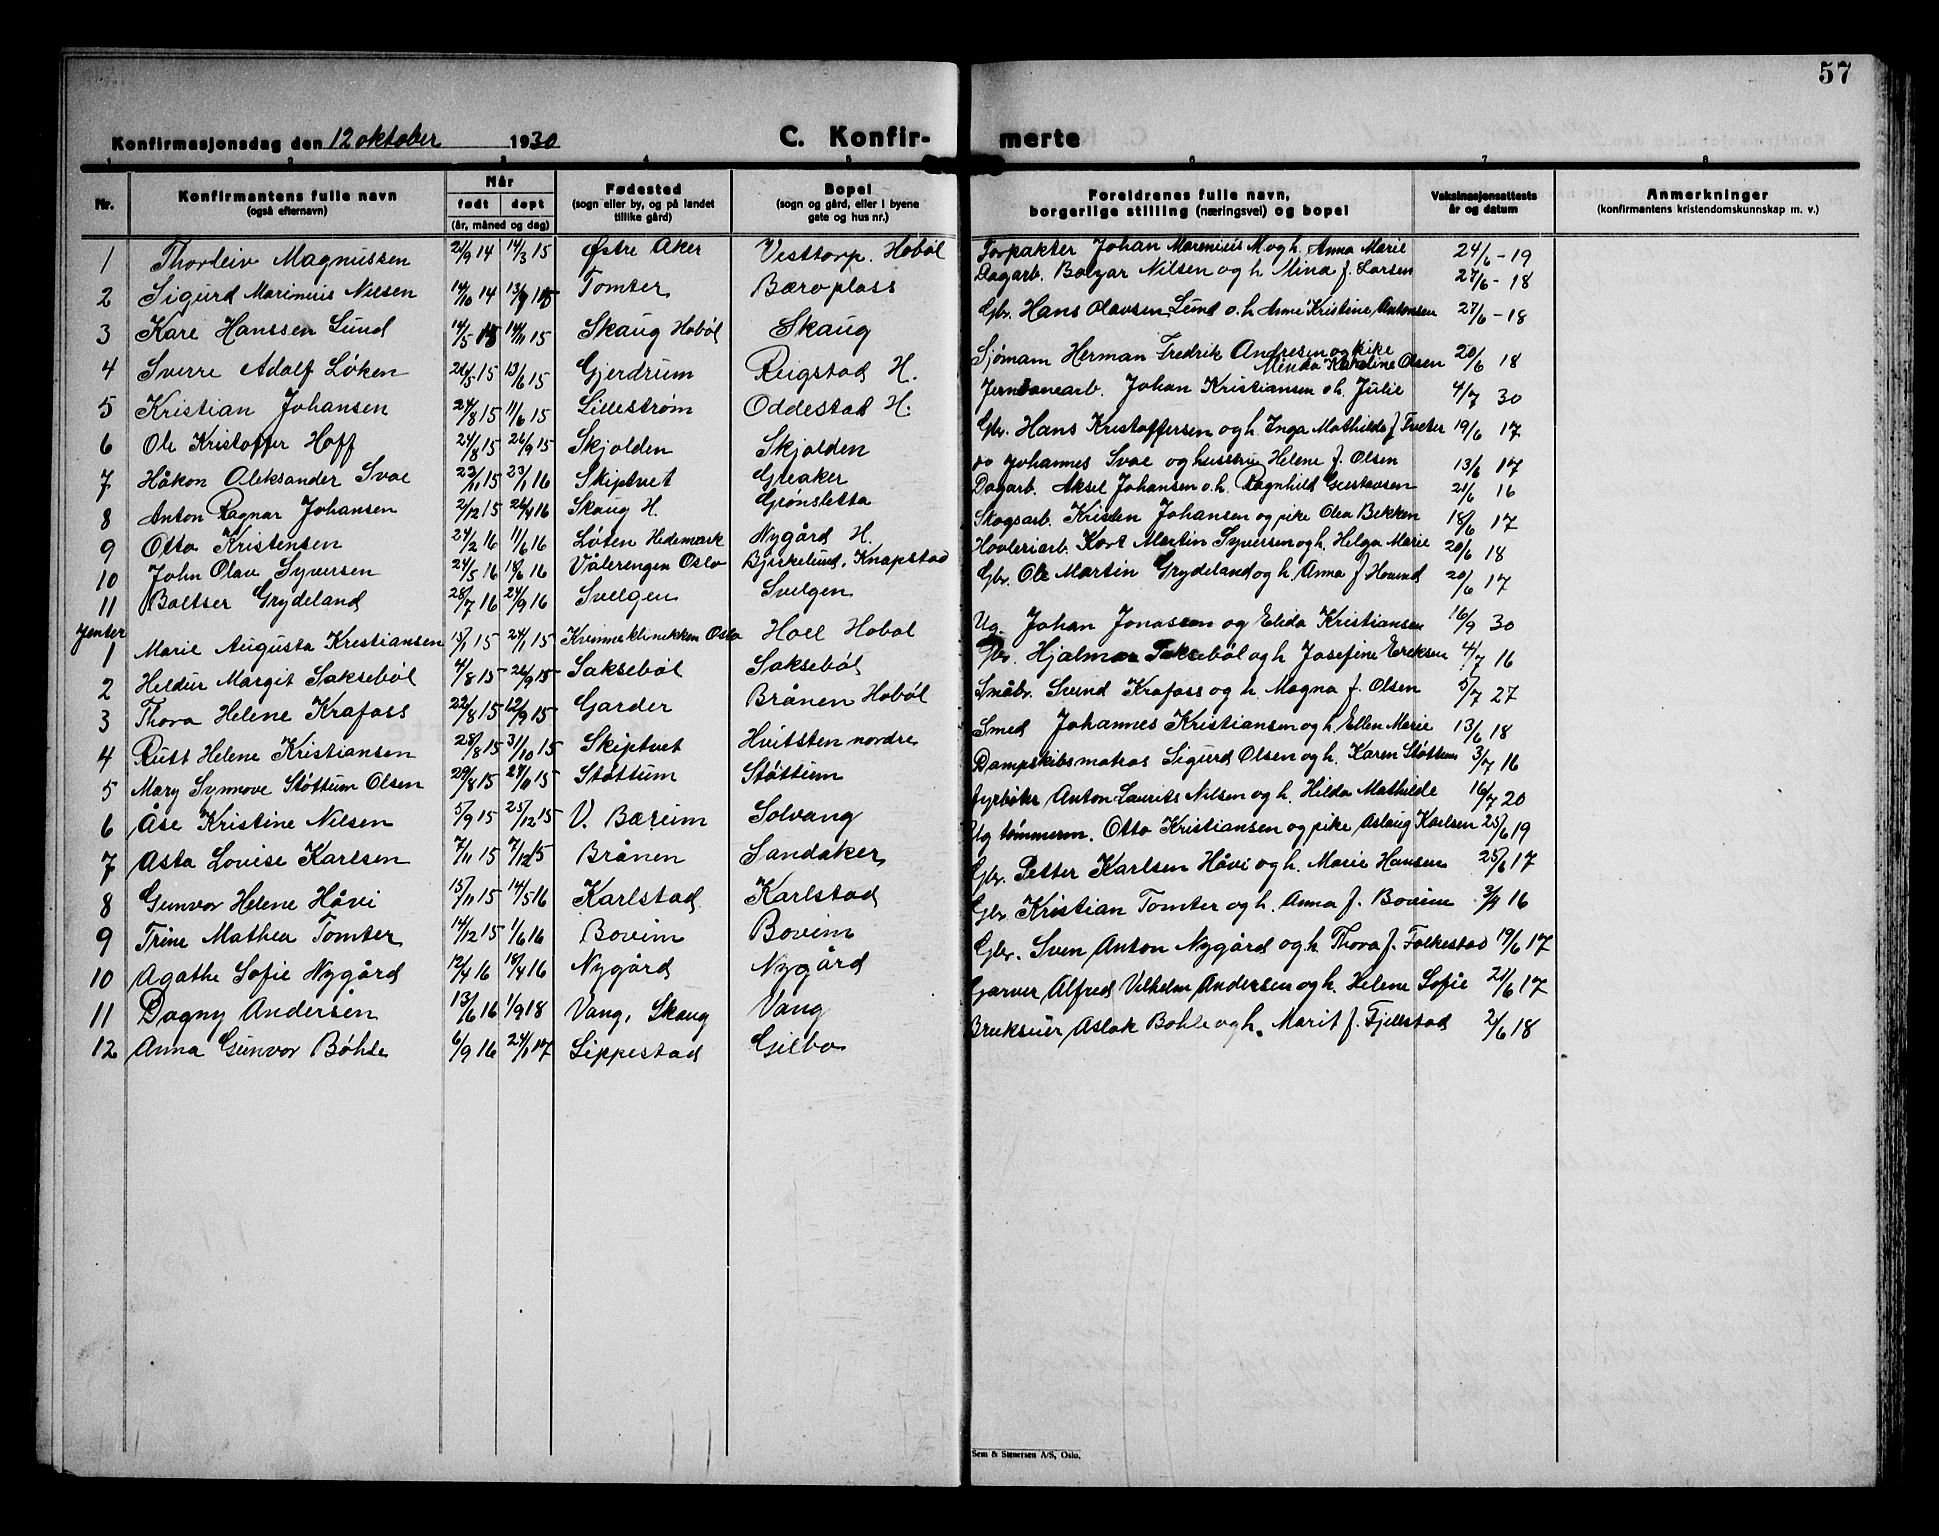 57
Konfirmasjonsdag den 12 oktober 1930
C. Konfir-
merte
1 2 3 4 5 6 7 8
Nr.
Konfirmantens fulle navn
(også efternavn)
Når
født
døpt
(år, måned og dag)
Fødested
(sogn eller by, og på landet
tillike gård)
Bopel
(sogn og gård, eller i byene
gate og hus nr.)
Foreldrenes fulle navn,
borgerlige stilling (næringsvei) og bopel
Vaksinasjonsattests
år og datum
Anmerkninger
(konfirmantens kristendomskunnskap m. v.)
1 Thorleiv Magnussen 21/9 14 14/3 15 Østre Aker Vesttorp. Hobøl Johan Marenius M. og h. Anna Marie 24/6-19
2 Sigurd Marinius Nilsen 14/10 14 Tomter Bæroplass Dagarb. Nilsen og h Mina f. Larsen 27/6-18
3 Kåre Hanssen Lund 14/5 14/11 15 Skaug Hobøl Skaug Gbr. Hans Olavsen Lund o.h Anne Kristine Antonsen 27/6-18
4 Sverre Adolf Løken 15 13/6 15 Gjerdrum Reigstad H. Sjømann Herman Fredrik Andresen og pike Minda Karoline Olsen 20/6 18
5 Kristian Johansen 15 11/6 15 Lillestrøm Oddestad H. Johan Kristiansen o.h. Julie 4/7 30
6 Ole Kristoffer Hoff 24/8 15 26/9 15 Skjolden Skjolden Gbr. Hans Kristoffersen og h. Inga Mathilde f. Tveter 19/6 17
7 Håkon Aleksander Svae 22/11 15 23/1 16 Skiptvet Greaker do Johannes Svae og hustru Helene f. Olsen 13/6 17
8 Anton Ragnar Johansen 2/12 15 24/4 16 Skaug H. Grønsletta Dagarb. Aksel Johansen o.h. Ragnhild Gustavsen 21/6 16
9 Otto Kristensen 24/2 16 11/6 16 Løten Hedemark Nygård H. Skogsarb. Kristen Johansen og pike Olea Bekken 18/6 17
10 John Olav Syversen 24/5 16 18/6 16 Vålerengen Oslo Bjerkelund, Knapstad Høvleriarb. Kort Martin Syversen og h. Helga Marie 20/6 18
11 Baltser Grydeland 28/7 16 24/9 16 Svelgen Svelgen Gbr. Ole Martin Grydeland og h. Anna f. 20/6 17
Jenter
1 Marie Augusta Kristiansen 15/1 15 24/1 15 Kvinneklinikken Oslo Hoel Hobøl Ug. Johan Jonassen og Elida Kristiansen 16/9 30
2 Heldur Margit Saksebøl 4/8 15 26/9 15 Saksebøl Saksebøl Gbr. Hjalmar Saksebøl og h Josefine Eriksen 4/7 16
3 Thora Helene Krafoss 22/8 15 12/9 15 Garder Brånen Hobøl Småbr. Svend Krafoss og h. Magna f. Olsen 5/7 27
4 Rutt Helene Kristiansen 28/8 15 31/10 15 Skiptvet Hvitsten nordre Smed Johannes Kristiansen og h. Ellen Marie 13/6 18
5 Mary Synnøve Støttum Olsen 29/8 15 15 Støttum Støttum Dampskibsmatros Sigurd Olsen og h. Karen Støttum 3/7 16
6 Åse Kristine Nilsen 5/9 15 25/12 15 V. Bæreim Solvang Fyrbøter Anton Laurits Nilsen og h. Hilda Mathilde 16/7 20
7 Asta Lovise Karlsen 7/11 15 7/12 15 Brånen Sandaker Ug tømmerm. Otto Kristiansen og pike Aslaug Karlsen 25/6 19
8 Gunvor Helene Håvi 15/11 15 14/5 16 Karlstad Karlstad Gbr. Petter Karlsen Håvi og h. Marie Hansen 25/6 17
9 Trine Mathea Tomter 14/12 15 1/6 16 Bovim Bovim Gbr. Kristian Tomter og h. Anna f. Bovim 3/7 16
10 Agathe Sofie Nygård 12/4 16 18/4 16 Nygård Nygård Gbr. Sven Anton Nygård og h. Thora f. Folkestad 19/6 17
11 Dagny Andersen 13/6 16 1/9 18 Vang, Skaug Vang Garver Alfred Vilhelm Andersen og h. Helene Sofie 21/6 17
12 Anna Gunvor Bøhle 6/9 16 24/1 17 Lippestad Gilbo Brukseier Aslak Bøhle og h. Marit f. Fjellstad 2/6 18
Sem & Stenersen A/S, Oslo.